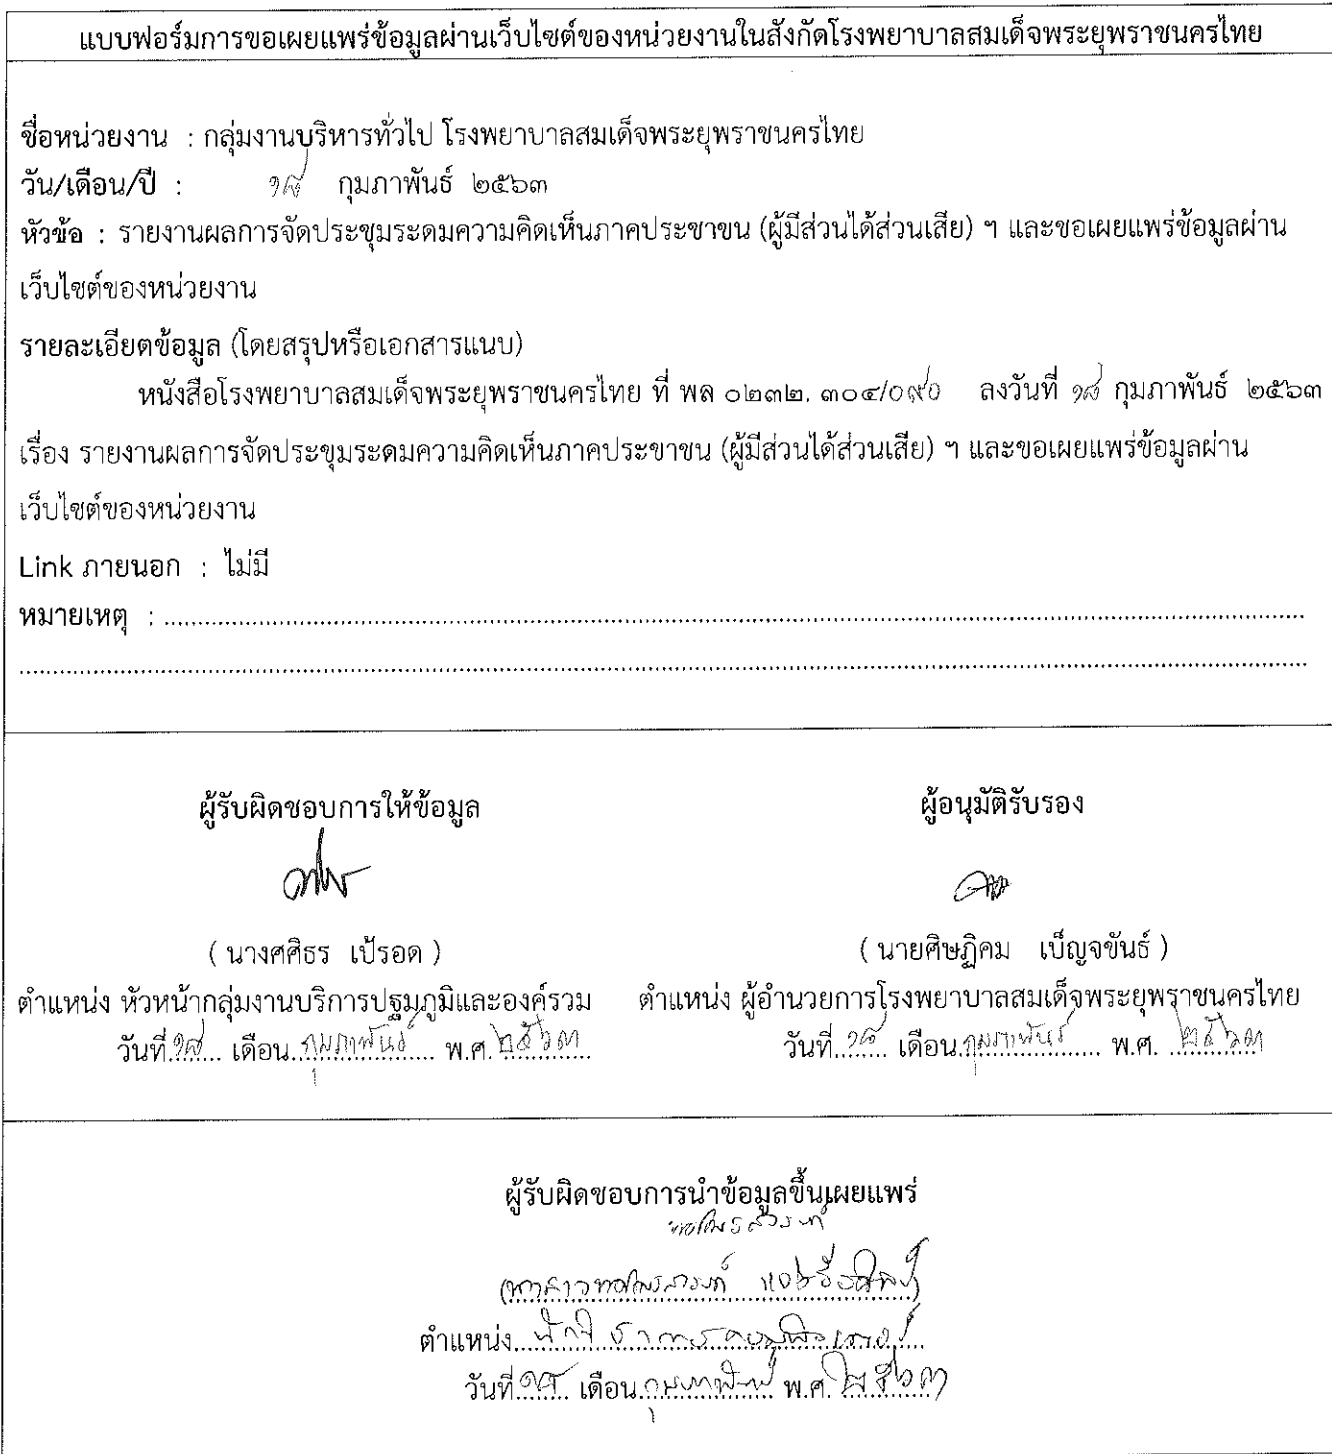 แบบฟอร์มการขอเผยแพร่ข้อมูลผ่านเว็บไซต์ของหน่วยงานในสังกัดโรงพยาบาลสมเด็จพระยุพราชนครไทย
ชื่อหน่วยงาน : กลุ่มงานบริหารทั่วไป โรงพยาบาลสมเด็จพระยุพราชนครไทย
วัน/เดือน/ปี : ๑๘ กุมภาพันธ์ ๒๕๖๓
หัวข้อ : รายงานผลการจัดประชุมระดมความคิดเห็นภาคประชาขน (ผู้มีส่วนได้ส่วนเสีย) ฯ และขอเผยแพร่ข้อมูลผ่าน
เว็บไซต์ของหน่วยงาน
รายละเอียตข้อมูล (โดยสรุปหรือเอกสารแนบ)
หนังสือโรงพยาบาลสมเด็จพระยุพราชนครไทย ที่ พล ๐๒๓๒. ๓๐๔/๐๙๐ ลงวันที่ ๑๘ กุมภาพันธ์ ๒๕๖๓
เรื่อง รายงานผลการจัดประขุมระดมความคิดเห็นภาคประขาขน (ผู้มีส่วนได้ส่วนเสีย) ฯ และขอเผยแพร่ข้อมูลผ่าน
เว็บไซต์ของหน่วยงาน
Link ภายนอก : ไม่มี
หมายเหตุ :
ผู้รับผิดชอบการให้ข้อมูล
ผู้อนุมัติรับรอง
( นางศศิธร เป้รอด )
( นายศิษฏิคม เบ็ญจขันธ์ )
ตำแหน่ง หัวหน้ากลุ่มงานบริการปฐมภูมิและองค์รวม
ตำแหน่ง ผู้อำนวยการโรงพยาบาลสมเด็จพระยุพราชนครไทย
วันที่ ๑๘ เดือน กุมภาพันธ์ พ.ศ. ๒๕๖๓
วันที่ ๑๘ เดือน กุมภาพันธ์ พ.ศ. ๒๕๖๓
ผู้รับผิดชอบการนำข้อมูลขึ้นเผยแพร่
ตำแหน่ง นักวิชาการคอมพิวเตอร์
วันที่ ๑๘ เดือน กุมภาพันธ์ พ.ศ. ๒๕๖๓